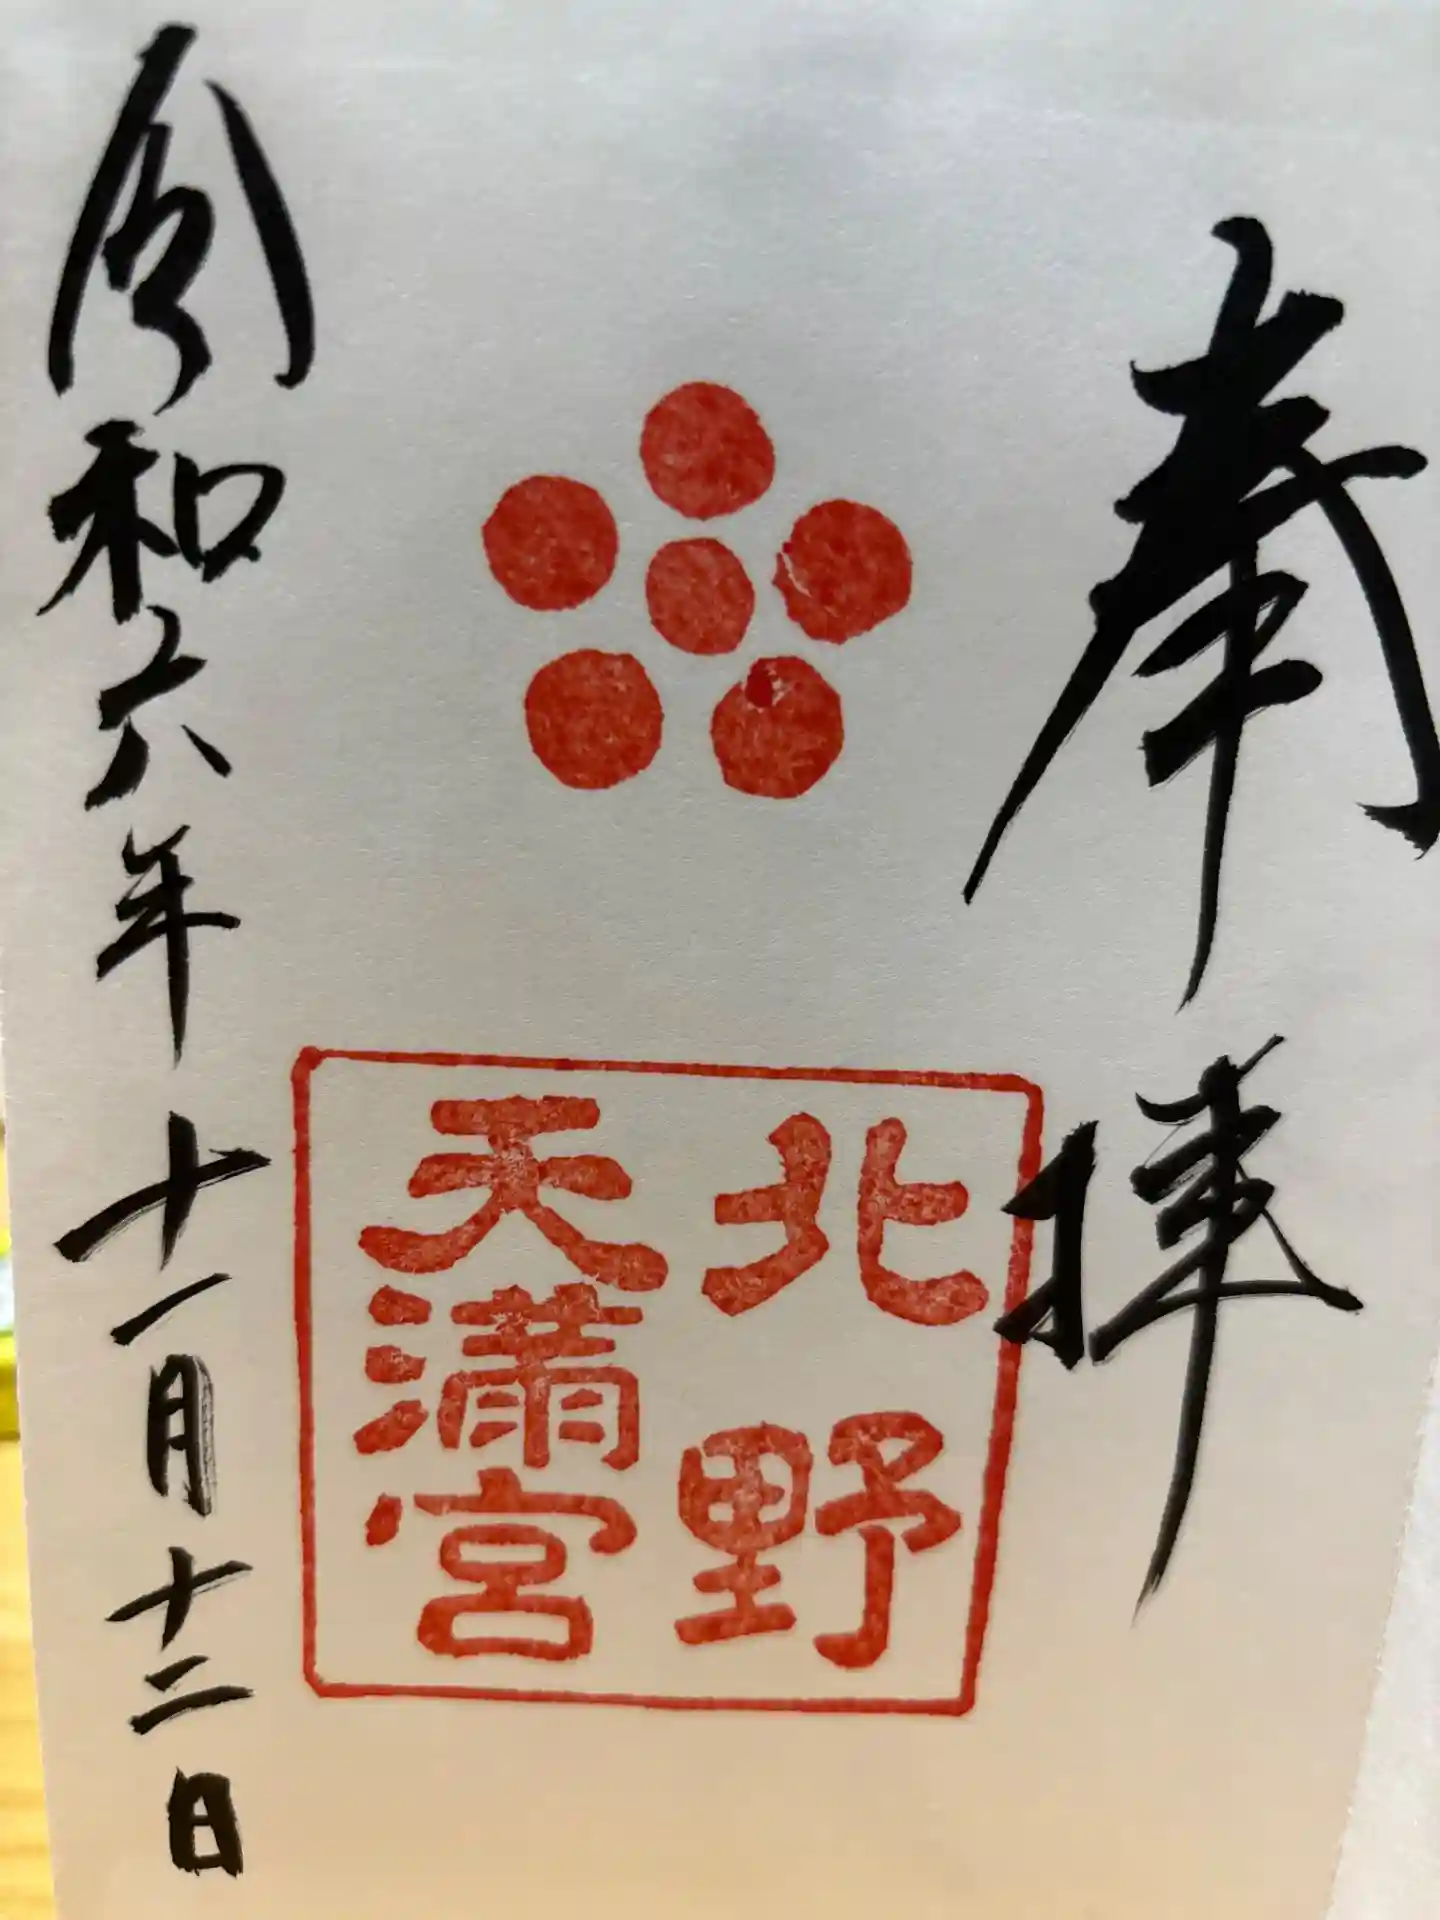 奉拝
北野
天満宮
令和六年十一月十二日